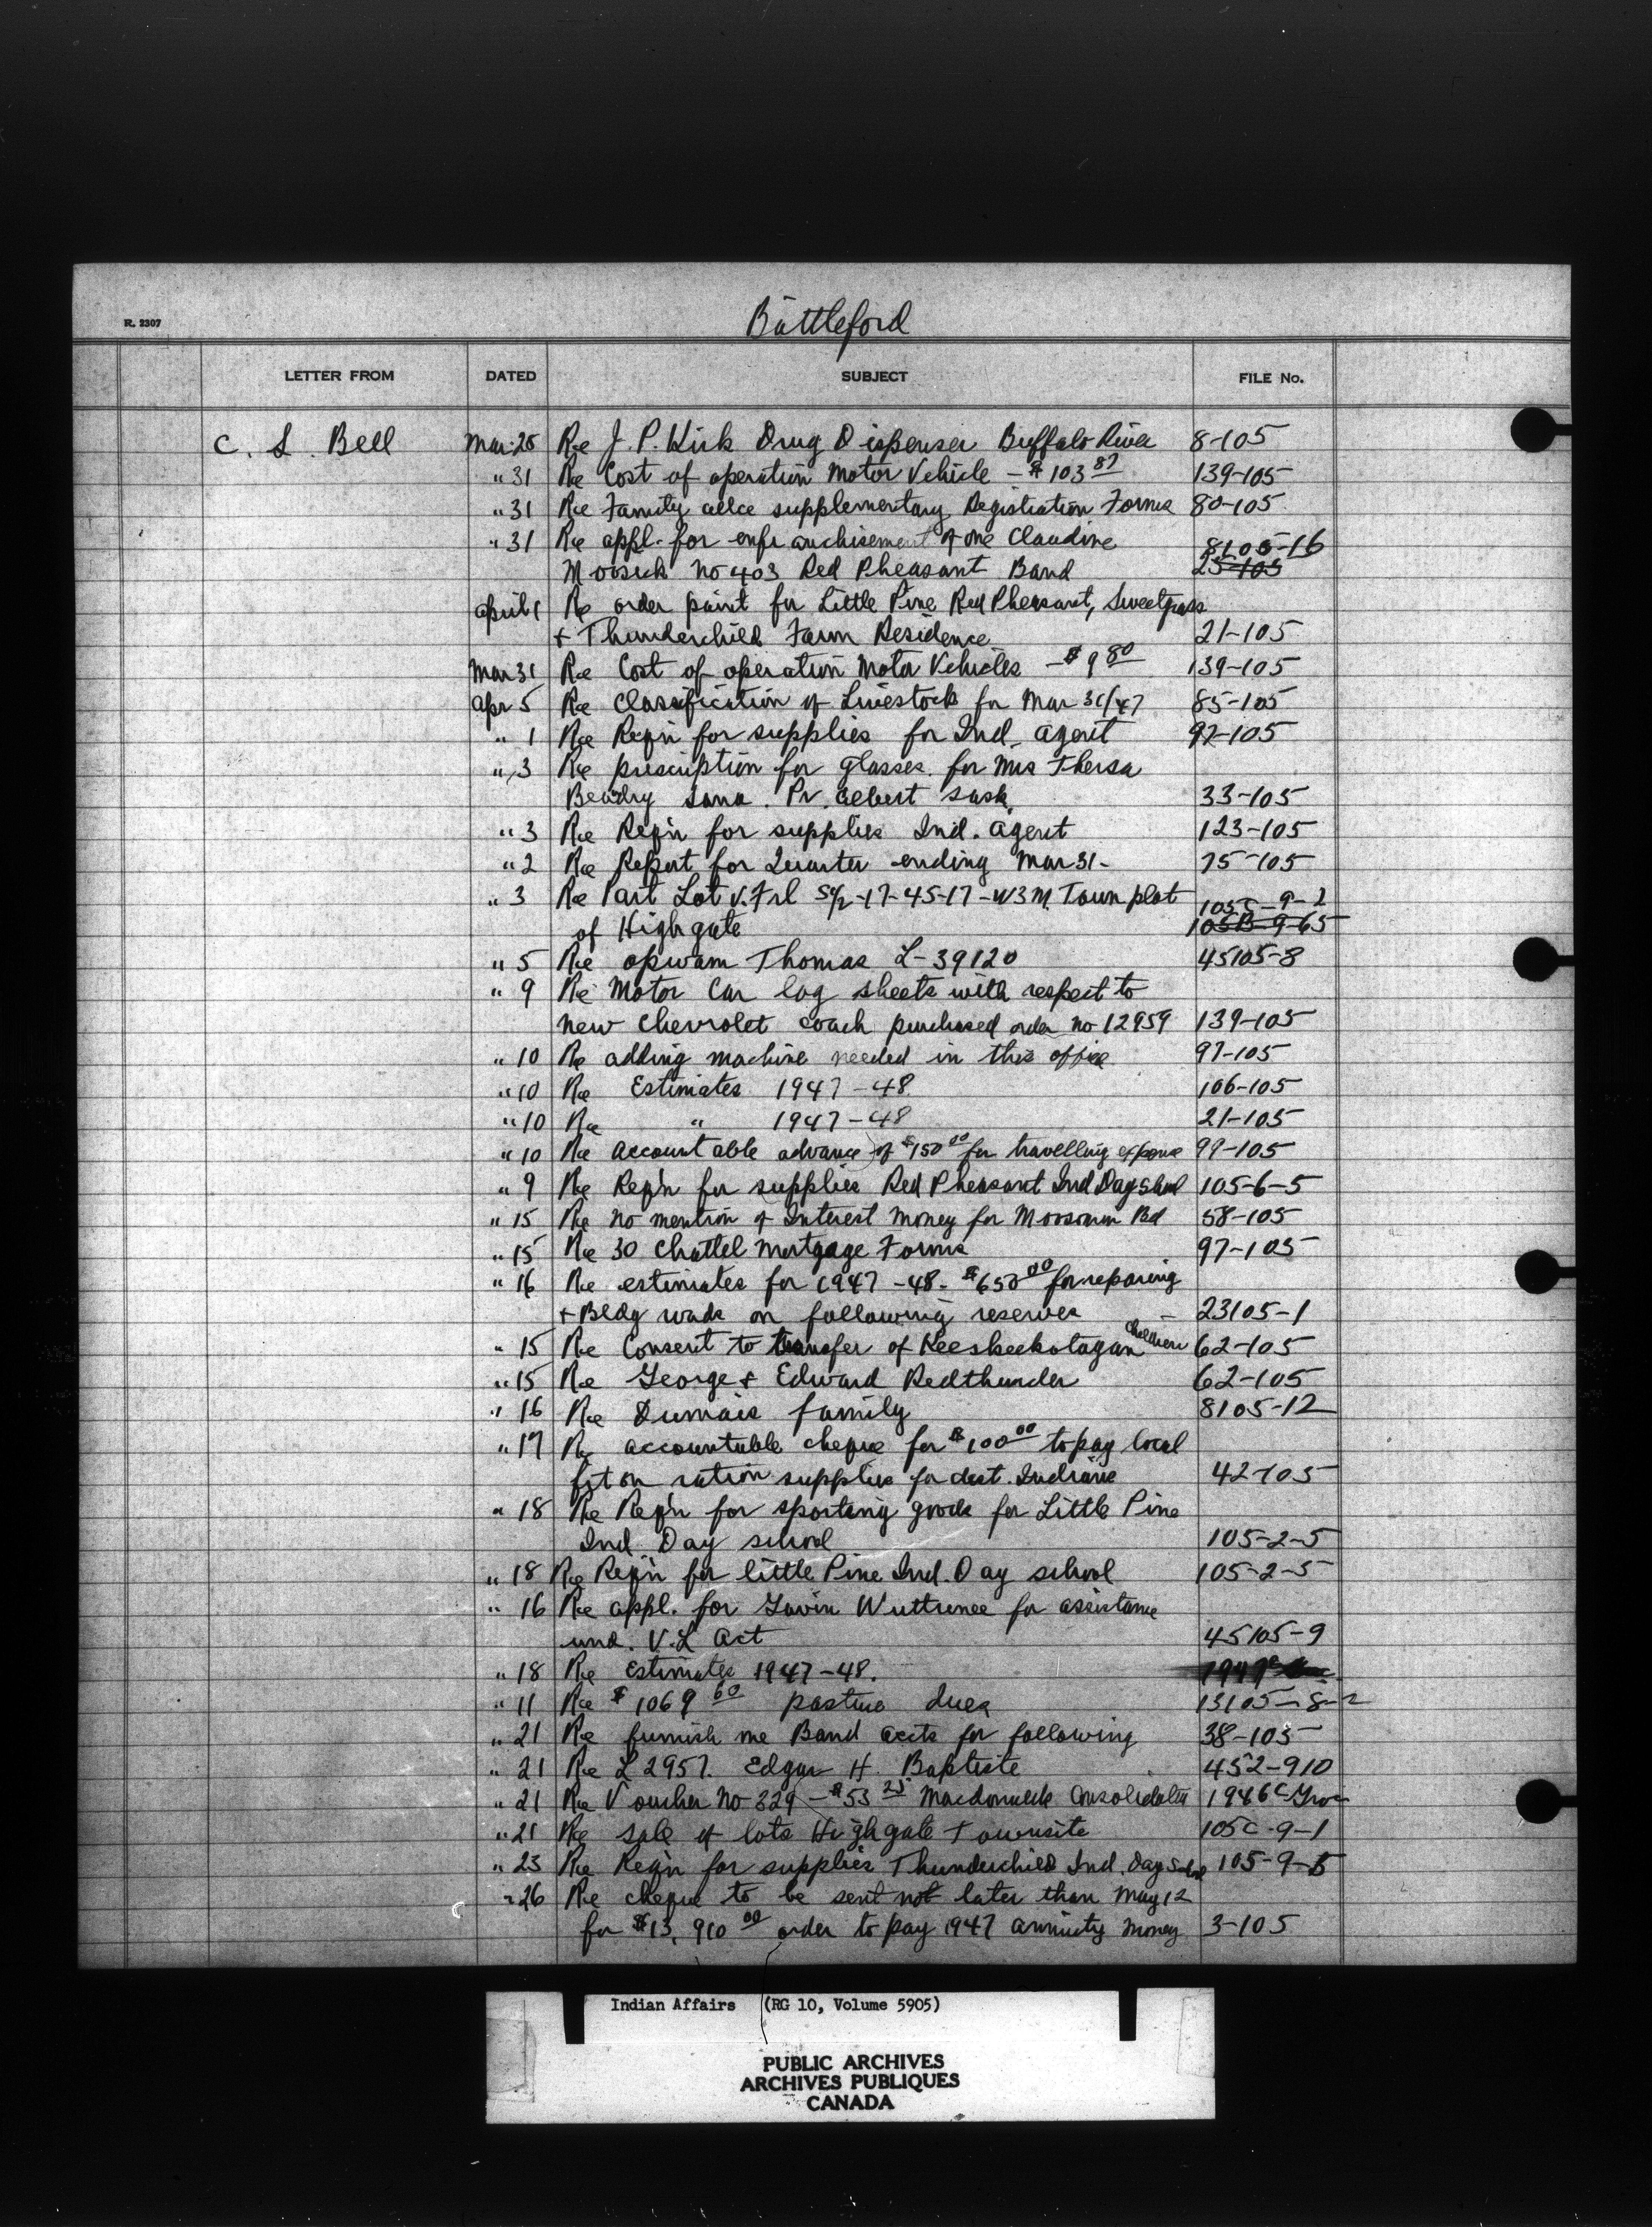 Battleford
R. 2307
LETTER FROM DATED SUBJECT FILE No.
C. S. Bell Mar 28 Re J. P. Kirk Drug Dispenser Buffalo River 8-105
" 31 Re Cost of operation Motor Vehicle - $103 87 139-105
" 31 Re Family allce supplementary Registration Forms 80-105
" 31 Re appl. for enfranchisement of one Claudine 8105-16
no 403 Red Pheasant Band 25-105
April 1 Re order paint for Little Pine Red Pheasant, Sweetgrass
+ Thunderchild Farm Residence 21-105
Mar 31 Re Cost of operation Motor Vehicles - $9 80 139-105
Apr 5 Re Classification of Livestock for Mar 31/47 85-105
" 1 Re Reqn for supplies for Ind. Agent 97-105
" 3 Re prescription for glasses for Mrs Thersa
Beadry Sana. Pr. Albert Sask. 33-105
" 3 Re Reqn for supplies Ind. Agent 123-105
" 2 Re Report for Quarter ending Mar 31- 75-105
" 3 Re Part Lot V. Frl S½-17-45-17-W3M. Town plot 105C-9-2
of Highgate 105B-9-65
" 5 Re Opwam Thomas L-39120 45105-8
" 9 Re Motor Car log sheets with respect to
new Chevrolet coach purchased order no 12959 139-105
" 10 Re adding machine needed in this office 97-105
" 10 Re Estimates 1947-48 106-105
" 10 Re " 1947-48 21-105
" 10 Re Accountable advance of $150 00 for travelling expense 99-105
" 9 Re Reqn for supplies Red Pheasant Ind Day Schol 105-6-5
" 15 Re no mention of Interest Money for Moosomin Bd 58-105
" 15 Re 30 Chattel Mortgage Forms 97-105
" 16 Re estimates for 1947-48- $650 00 for reparing
+ Bldg on following reserves - 23105-1
" 15 Re Consent to transfer of Keesheekotagan children 62-105
" 15 Re George + Edward Redthunder 62-105
" 16 Re Dumais family 8105-12
" 17 Re accountable cheque for $100 00 to pay local
ration supplies for dest. Indians 42-105
" 18 Re Reqn for sporting goods for Little Pine
Ind. Day school 105-2-5
" 18 Re Reqn for little Pine Ind. Day school 105-2-5
" 16 Re appl. for Gavin Wuttunee for assistance
und. V.L Act 45105-9
" 18 Re Estimates 1947-48.
" 11 Re $1069 60 pasture dues 13105-8-2
" 21 Re furnish me Band accts for following 38-105
" 21 Re L 2957. Edgar H. Baptiste 452-910
" 21 Re Voucher No 329 - $53 25 Consolidated
" 21 Re sale of lots Highgate Townsite 105C-9-1
" 23 Re Reqn for supplies Thunderchild Ind. Day Schol 105-9-5
" 26 Re cheque to be sent not later than May 12
for $13,910 00 order to pay 1947 annuity money 3-105
Indian Affairs (RG 10, Volume 5905)
PUBLIC ARCHIVES
ARCHIVES PUBLIQUES
CANADA